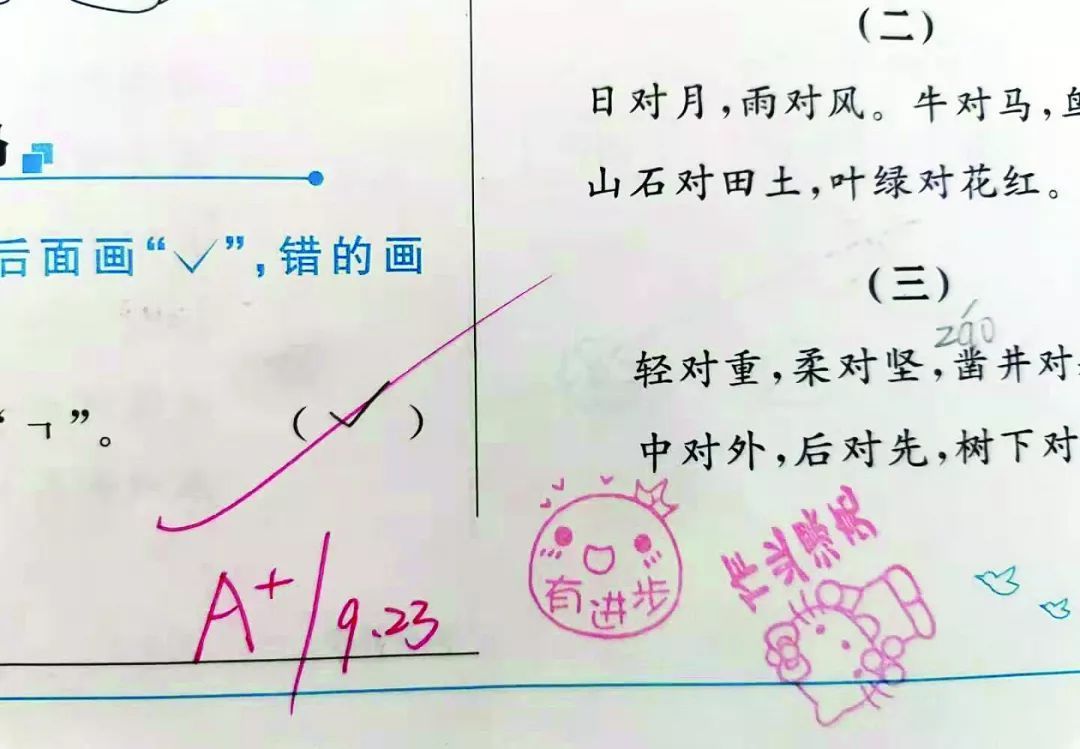 后面画“✓”，错的画
“㇕”。 （✓）
A+/9.23
（二）
日对月，雨对风。牛对马，
山石对田土，叶绿对花红。
（三）
záo
轻对重，柔对坚，凿井对
中对外，后对先，树下对
有进步
作业